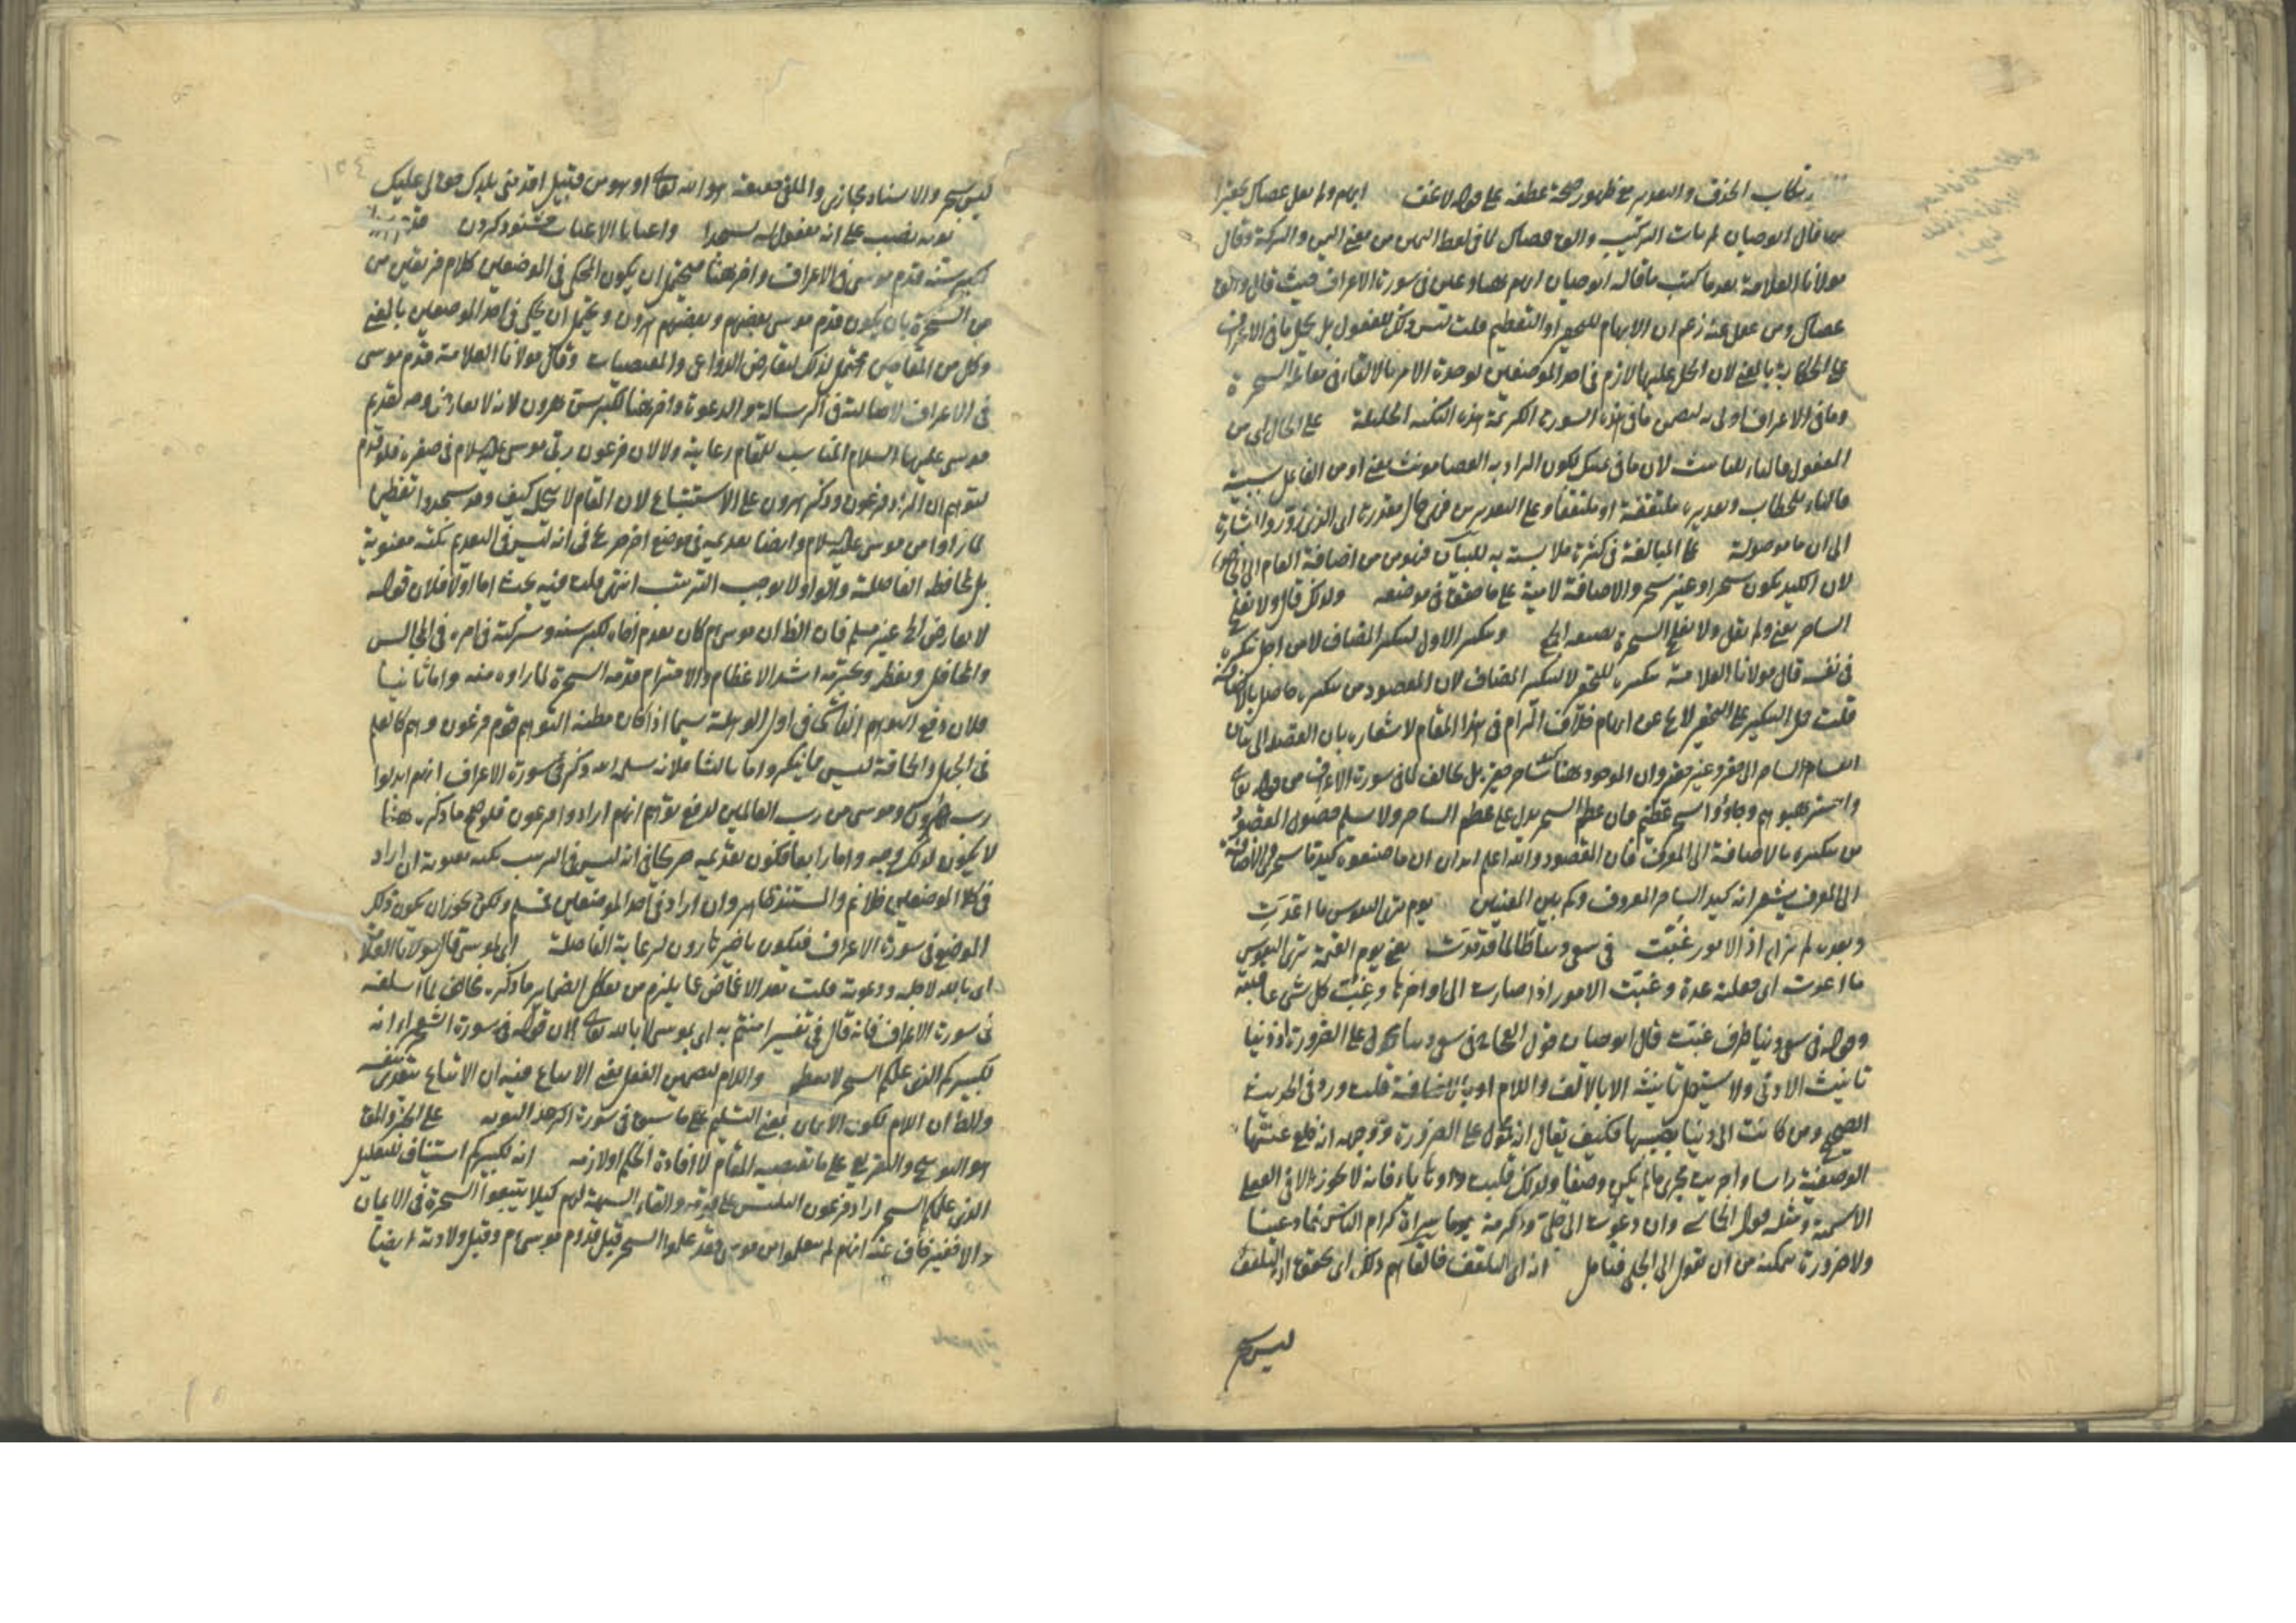 ارتكاب الحذف والتقدير مع ظهور صحة عطفه على قوله لا تخف ابهام ولم يقل عصاك تحقيرا
قال ابو حيان لم يات التركيب والق عصاك لما في لفظ اليمين من معنى اليمن والبركة وقال
مولانا العلامة بعد ما كتب ما قاله ابو حيان انهم في سورة الاعراف حيث قال والق
عصاك ومن غفل عنه زعم ان الابهام للتحقير او التعظيم قلت ليس ذلك للغفول بل يحمل ما في الاعراف
على الحكاية بالمعنى لان الحمل عليها لازم في احد الموضعين لوحدة الامر بالالقاء في مقابلة السحرة
وما في الاعراف اولى به لتضمن ما في هذه السورة الكريمة هذه النكتة الجليلة على الحال اي من
المفعول فالتاء للتانيث لان ما في يمينك لكون المراد به العصا مونث معنى او من الفاعل بسببية
فالتاء للخطاب وتقديره ملتقفة او ملتقفا وعلى التقديرين فهي حال مقدرة
الى ان ما موصولة على المبالغة في كثرة ملابسته به للبيان فهو من من اضافة العام الى الخاص
لان الكيد يكون سحرا وغير سحر والاضافة لامية على ما حقق في موضعه ولذلك قال ولا يفلح
الساحر يعني ولم يقل ولا يفلح السحرة بصيغة الجمع وتنكير الاول لتنكير المضاف لا من اجل تنكيره
في نفسه قال مولانا العلامة تنكيره للتحقير لا لتنكير المضاف لان المقصود من تنكيره حاصل بالاضافة
قلت حمل التنكير على التحقير لا يخ عن ابهام خلاف المرام في هذا المقام لاشعاره بان القصد الى بيان
انقسام الساحر الى حقير وغير حقير وان الموجود ههنا ساحر حقير بل يخالف لما في سورة الاعراف من قوله تعالى
واسترهبوهم وجاؤا بسحر عظيم فان عظم السحر يدل على عظم الساحر ولا يسلم حصول المقصود
من تنكيره بالاضافة الى المعرف فان المقصود والله اعلم ان ما صنعوه كيد ما سحري والاضافة
الى المعرف يشعر انه كيد الساحر المعروف وكم بين المعنيين يوم ترى النفوس ما اعدت
وبعده من نزل اذا الامور غبت في سعي دنيا طالما قد مدت يعني يوم القيمة ترى النفوس
ما اعدت اي جعلته عدة وغبت الامور اذا صارت الى اواخرها وغب كل شيء عاقبته
وقوله في سعي دنيا ظرف غبت قال ابو حيان قول العجاج في سعي دنيا محمول على الضرورة اذ دنيا
تانيث الادنى ولا يستعمل تانيثه الا بالالف واللام او بالاضافة قلت ورد في الحديث
الصحيح ومن كانت الى دنيا يصيبها فكيف يقال انه محمول على الضرورة ووجهه انه خلع عنها
الوصفية راسا واجريت مجرى ما لم يكن وصفا ولذلك قلبت واوها ياء فانه لا يجوز الا في الفعلى
الاسمية ومثله قول الحماسي وان دعوت الى جلى ومكرمة يوما سراة كرام الناس فادعينا
ولا ضرورة تمكنه من ان يقول الى الجلى فتامل انه اي التلقف فالقاهم ذلك اي تحقق ان التلقف
ليس بسحر
ليس بسحر والاسناد مجازي والملقي حقيقة هو الله تعالى او هو من قبيل اقدمني بلدك حق لي عليك
توبة نصب على انه مفعول له لسجدا واعتابا الاعتاب خشنود كردن
لكبر سنه قدم موسى في الاعراف واخر ههنا فيحتمل ان يكون المحكي في الموضعين كلام فريقين من
من السحرة بان يكون قدم موسى بعضهم وبعضهم هرون ويحتمل ان يحكى في احد الموضعين بالمعنى
وكل من المقامين محتمل لذلك لتعارض الدواعي والمقتضيات وقال مولانا العلامة قدم موسى
في الاعراف لاصالته في الرسالة والدعوة واخر ههنا لكبر سن هرون لانه لا يعارض وجه تقديم
موسى عليهما السلام المناسب للمقام رعاية ولا لان فرعون ربى موسى عليه السلام في صغره فلو قدم
لتوهم ان المراد فرعون وذكر هرون على الاستتباع لان المقام لا يحمله كيف وقد سجدوا تعظيما
لما راوا من موسى عليه السلام وايضا تقديمه في موضع اخر صريح في انه ليس في التقديم نكتة معنوية
بل لمحافظة الفاصلة والواو لا يوجب الترتيب انتهى قلت فيه بحث اما اولا فلان قوله
لا يعارض الخ غير مسلم فان الظ ان موسى م كان يقدم اخاه لكبر سنه وشركته في امره في المجالس
والمحافل ويعظمه ويحترمه اشد الاعظام والاحترام فقدمه السحرة لما راوه منه واما ثانيا
فلان دفع التوهم الناشئ في اول الوهلة سيما اذا كان مظنة التوهم قوم فرعون وهم كالعلم
في الجهل والحماقة ليس مما ينكر واما ثالثا فلانه سلمه الله ذكر في سورة الاعراف انهم ابدلوا
رب هرون وموسى من رب العالمين لدفع توهم انهم ارادوا فرعون فلو صح ما ذكره ههنا
لا يكون لذلك وجه واما رابعا فكون تقديمه صريحا في انه ليس في الترتيب نكتة معنوية ان اراد
في كلا الموضعين فلا نم والسند ظاهر وان اراد في احد الموضعين فمسلم ولكن يجوز ان يكون ذلك
الموضع في سورة الاعراف فيكون تاخير هارون لرعاية الفاصلة اي لموسى قال مولانا العلامة
اي بالله لاجله ودعوته قلت بعد الاغماض عما يلزم من تفكك الضماير ما ذكره مخالف لما اسلفه
في سورة الاعراف فانه قال في تفسير امنتم به اي بموسى لا بالله تعالى لان قوله في سورة الشعراء انه
لكبيركم الذي علمكم السحر لا يساعده واللام لتضمين الفعل يعني الاتباع فيه ان الاتباع يتعدى بنفسه
والظ ان اللام لكون الايمان بمعنى التسليم على ما سبق في سورة
هو التوبيخ والتقريع على ما يقتضيه المقام لا افادة الحكم او لازمه انه لكبيركم استيناف للتعليل
الذي علمكم السحر اراد فرعون التلبيس على قومه والقاء الشبهة لهم كيلا يتبعوا السحرة في الايمان
والا فغير خاف عنه انهم لم يتعلموا من موسى وقد علموا السحر قبل قدوم موسى م وقبل ولادته ايضا